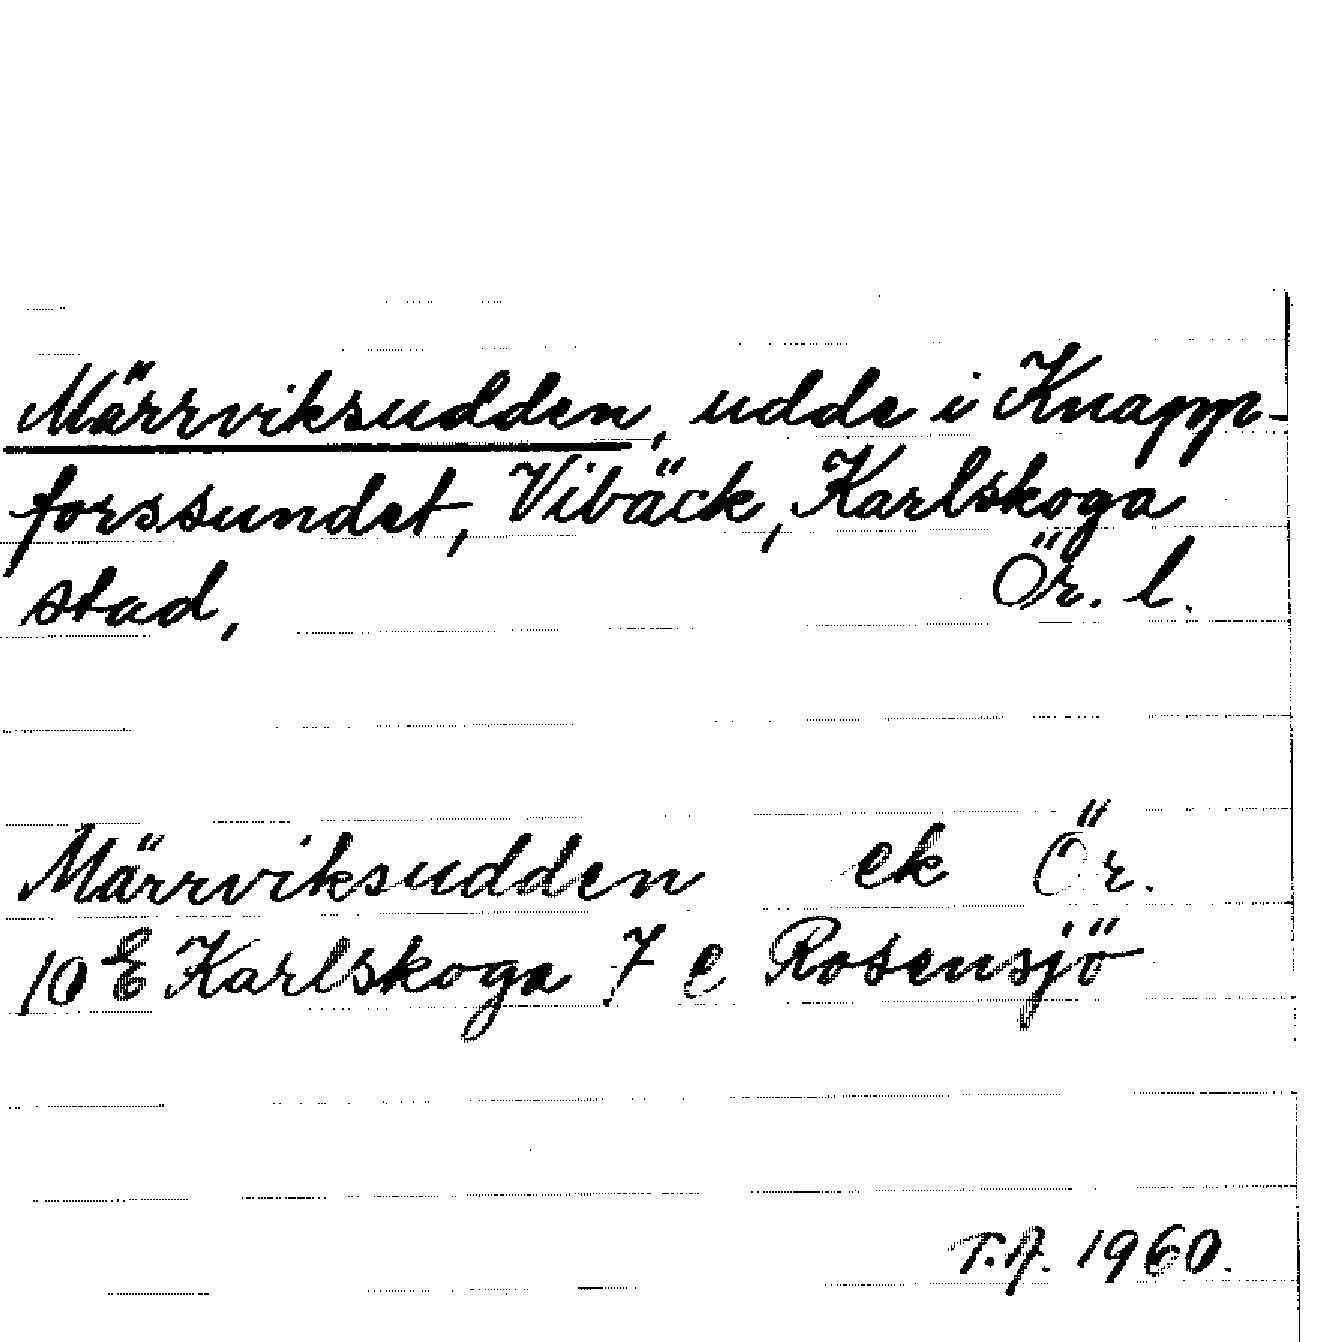 Märrviksudden, udde i Knapp-
forssundet, Vibäck, Karlskoga
stad, Ör. l.
Märrviksudden ek Ör.
10 E Karlskoga 7 e Rosensjö
T.A. 1960.